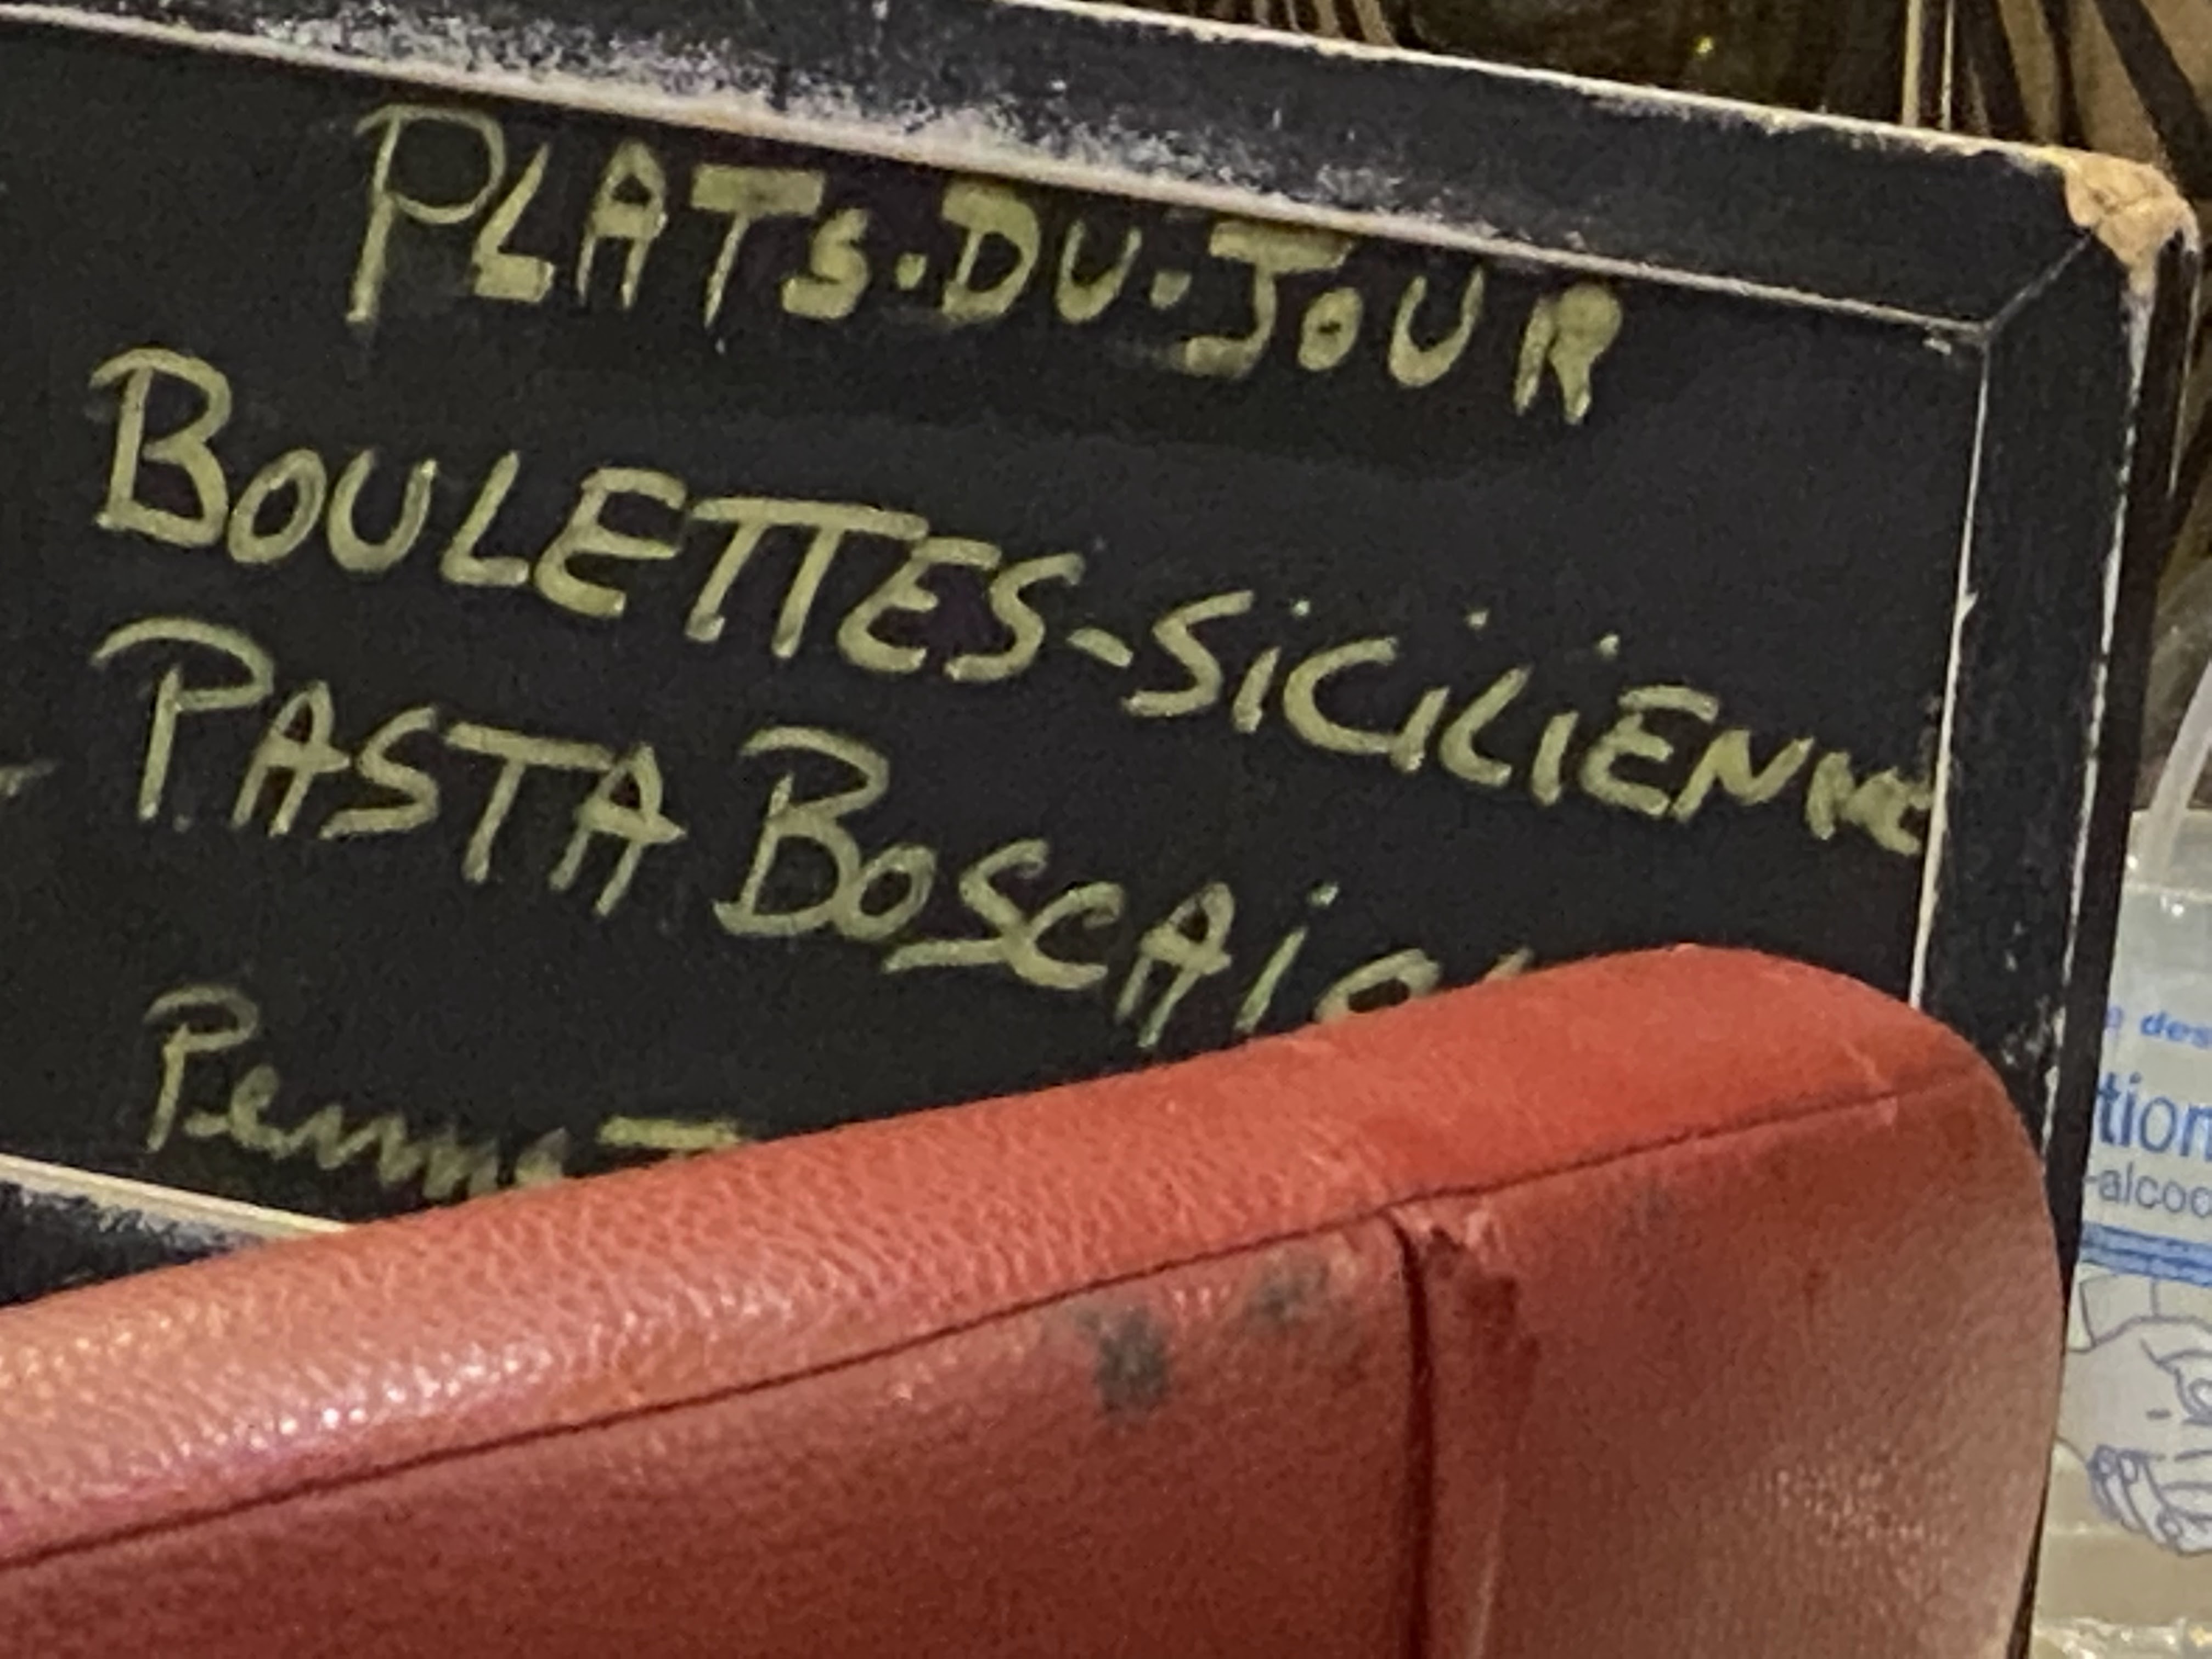 PLATS·DU·JOUR
BOULETTES-SiCiLiENNE
PASTA BOSCAiOL
Penne T
des
tion
-alcoo